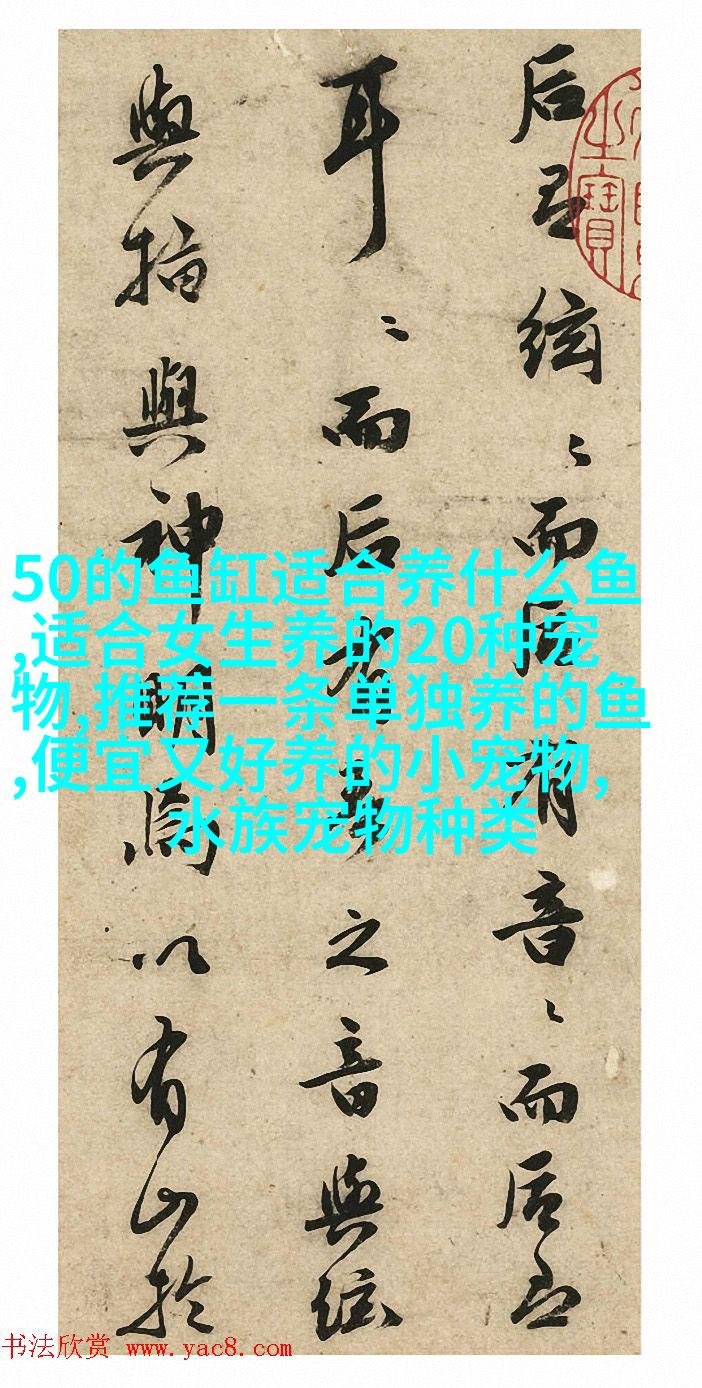 后絃〻而后有音〻而后
耳〻而后之音與絃
與指與神明以有於
寶
50的鱼缸适合养什么鱼
,适合女生养的20种宠
物,推荐一条单独养的鱼
,便宜又好养的小宠物,
水族宠物种类
书法欣赏 www.yac8.com